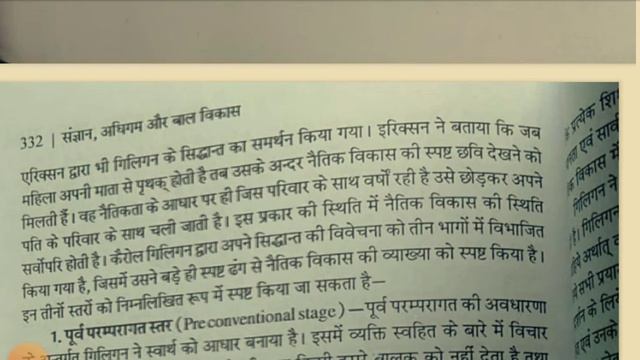 332 | संज्ञान, अधिगम और बाल विकास
एरिक्सन द्वारा भी गिलिगन के सिद्धान्त का समर्थन किया गया। इरिक्सन ने बताया कि जब
महिला अपनी माता से पृथक् होती है तब उसके अन्दर नैतिक विकास की स्पष्ट छवि देखने को
मिलती हैं। वह नैतिकता के आधार पर ही जिस परिवार के साथ वर्षों रही है उसे छोड़कर अपने
पति के परिवार के साथ चली जाती है। इस प्रकार की स्थिति में नैतिक विकास की स्थिति
सर्वोपरि होती है। कैरोल गिलिगन द्वारा अपने सिद्धान्त की विवेचना को तीन भागों में विभाजित
किया गया है, जिसमें उसने बड़े ही स्पष्ट ढंग से नैतिक विकास की व्याख्या को स्पष्ट किया है।
इन तीनों स्तरों को निम्नलिखित रूप में स्पष्ट किया जा सकता है—
1. पूर्व परम्परागत स्तर (Pre conventional stage) —पूर्व परम्परागत की अवधारणा
गिलिगन ने स्वार्थ को आधार बनाया है। इसमें व्यक्ति स्वहित के बारे में विचार
बालक को नहीं देता है तथा
प्रत्येक
एवं
विकास में
गिलिगन ने
गिलिगन
अर्थात्
सभी
के लिये
एवं उनके